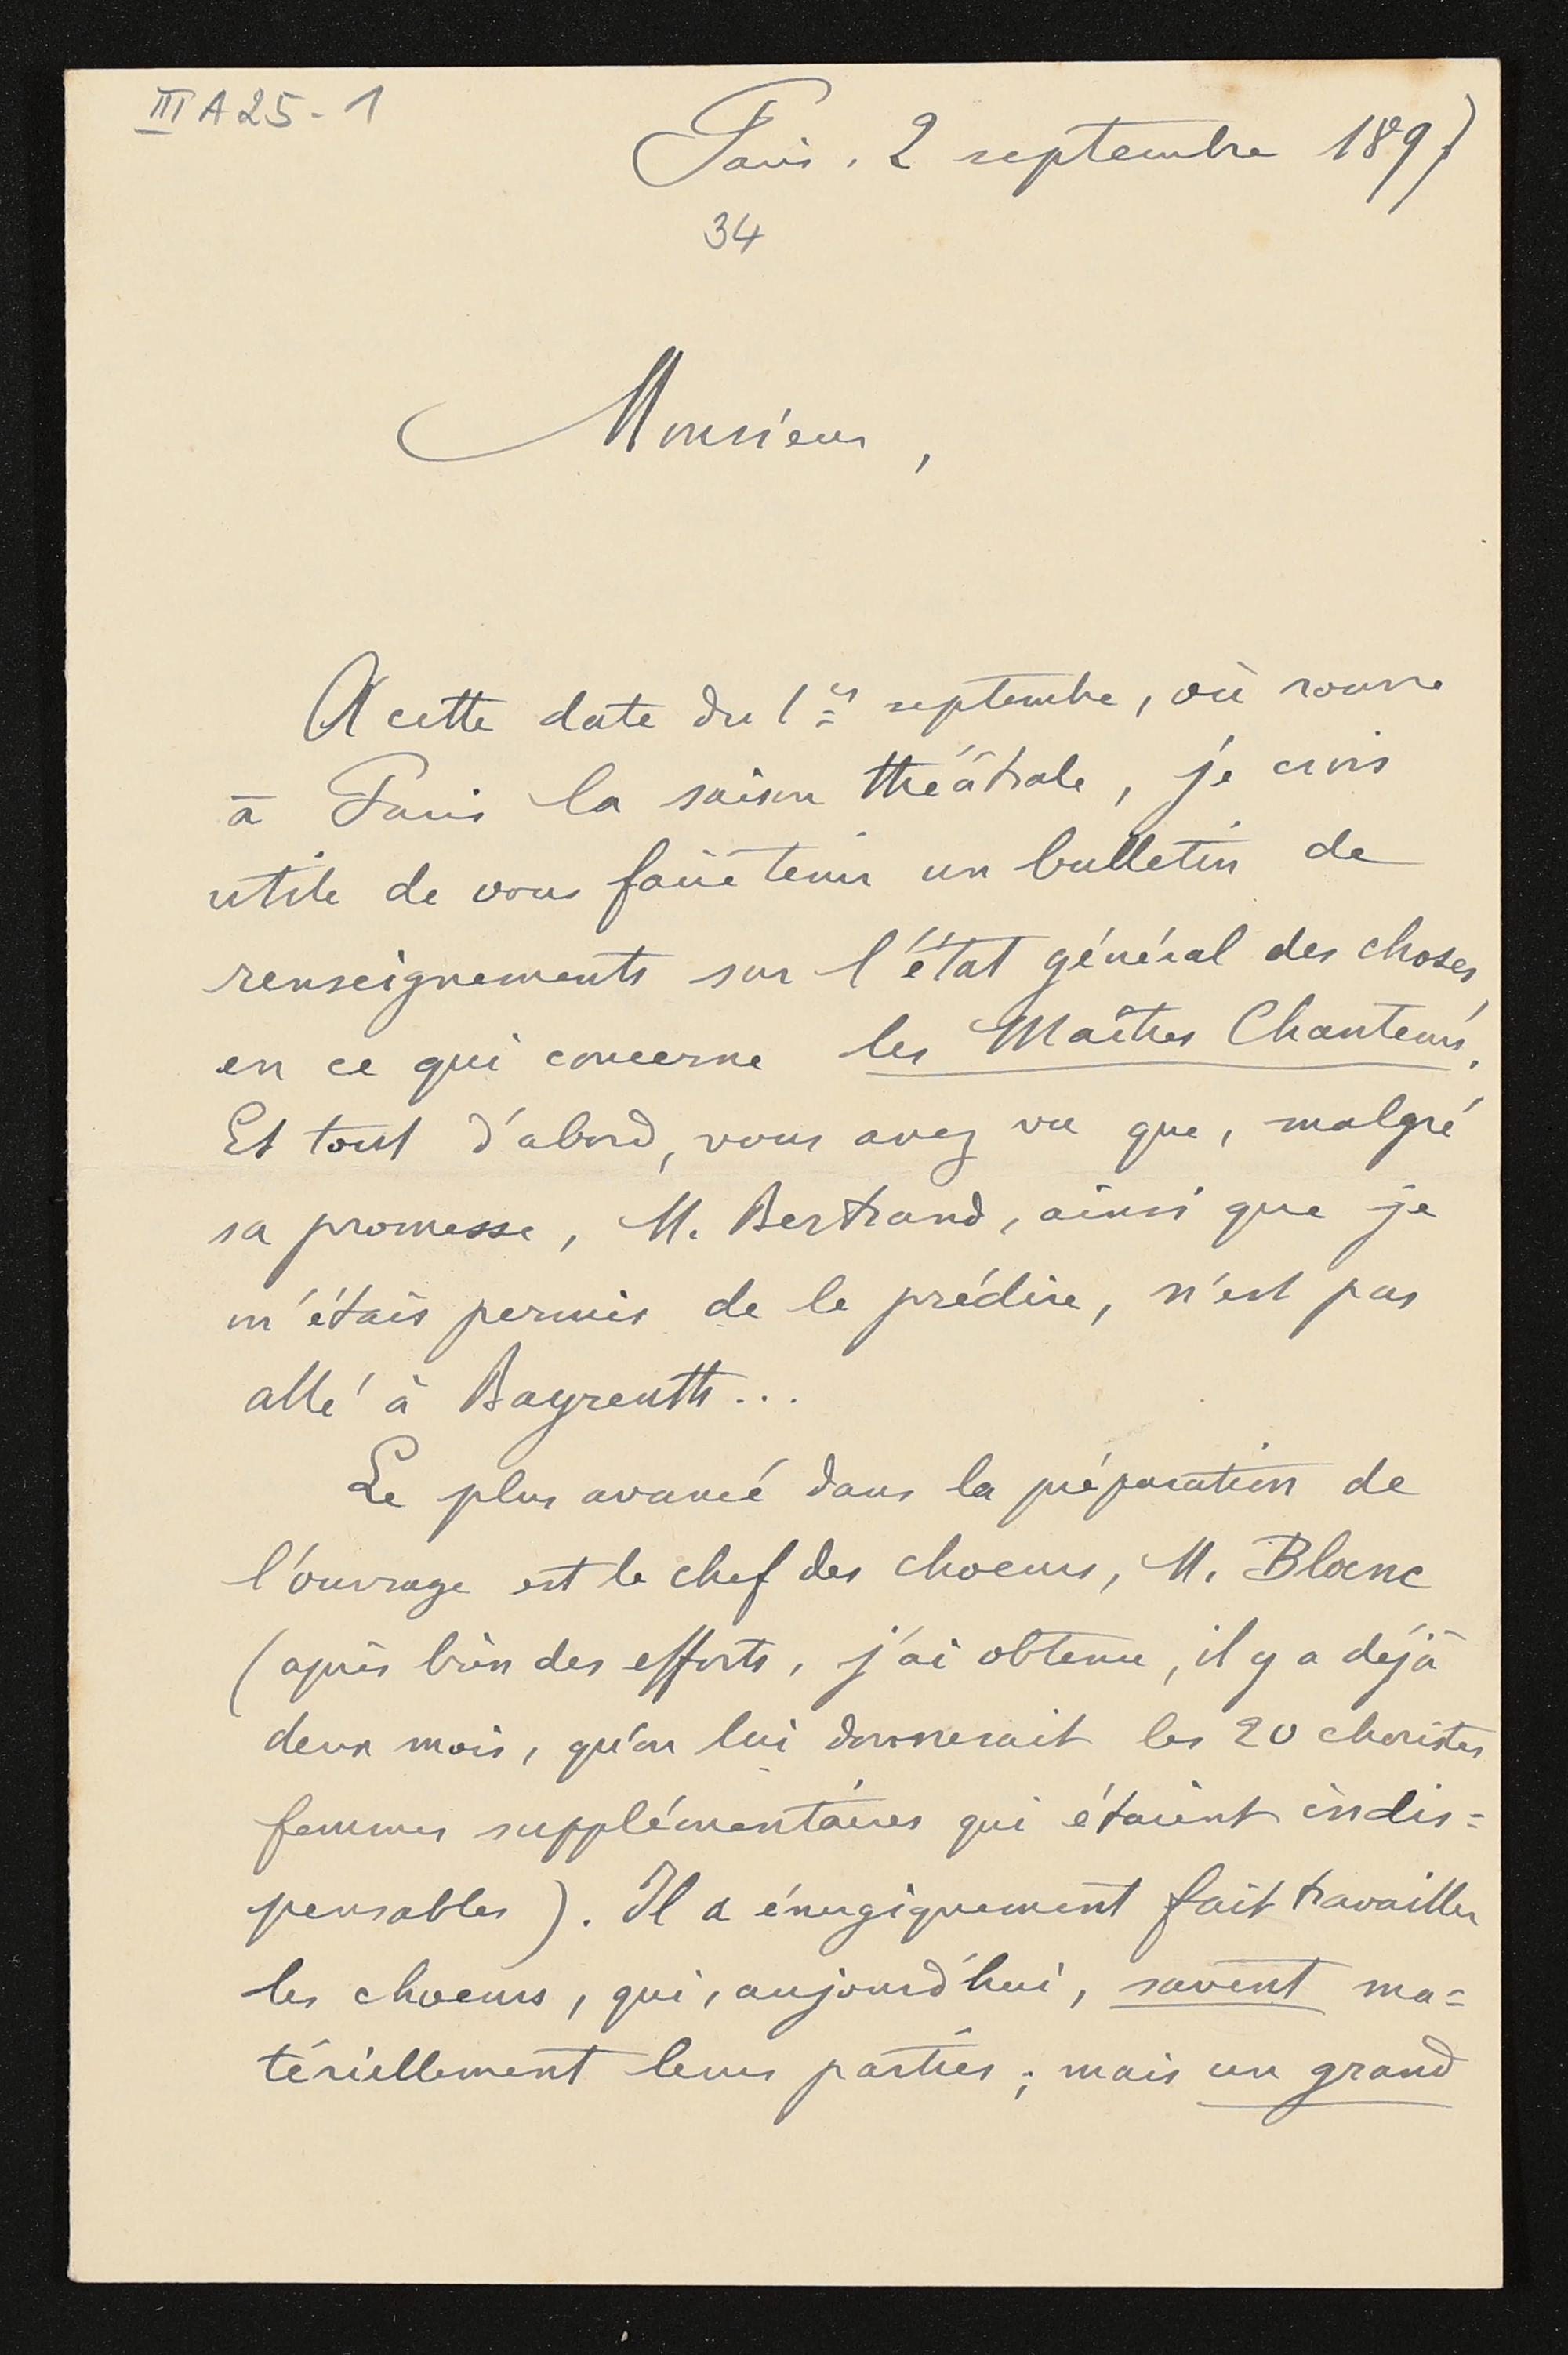 III A 25 - 1
Paris, 2 septembre 1897
34
Monsieur,
A cette date du 1er septembre, où rouvre
à Paris la saison théâtrale, je crois
utile de vous faire tenir un bulletin de
renseignements sur l'état général des choses,
en ce qui concerne les Maîtres Chanteurs.
Et tout d'abord, vous avez vu que, malgré
sa promesse, M. Bertrand, ainsi que je
m'étais permis de le prédire, n'est pas
allé à Bayreuth...
Le plus avancé dans la préparation de
l'ouvrage est le chef des choeurs, M. Blanc
(après bien des efforts, j'ai obtenu, il y a déjà
deux mois, qu'on lui donnerait les 20 choristes
femmes supplémentaires qui étaient indis=
pensables). Il a énergiquement fait travailler
les choeurs, qui, aujourd'hui, savent ma=
tériellement leurs parties; mais un grand